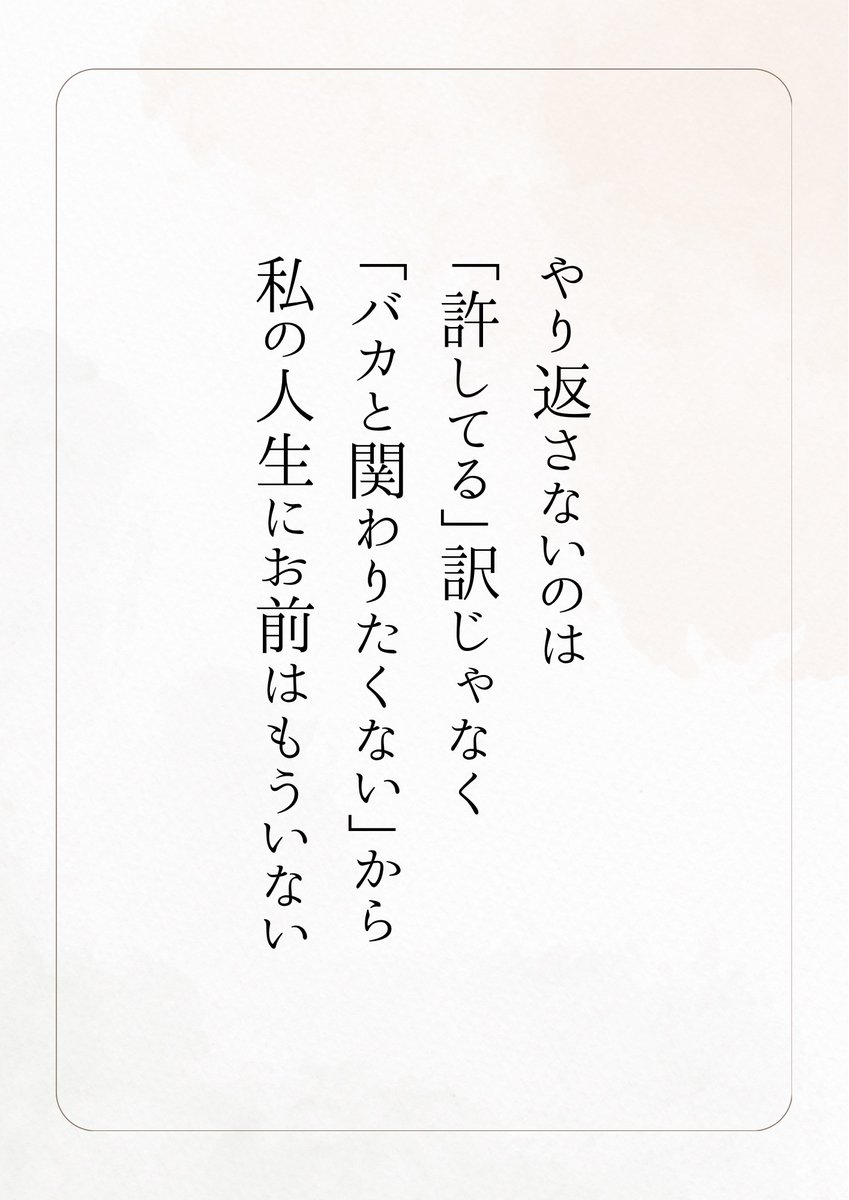 やり返さないのは
「許してる」訳じゃなく
「バカと関わりたくない」から
私の人生にお前はもういない